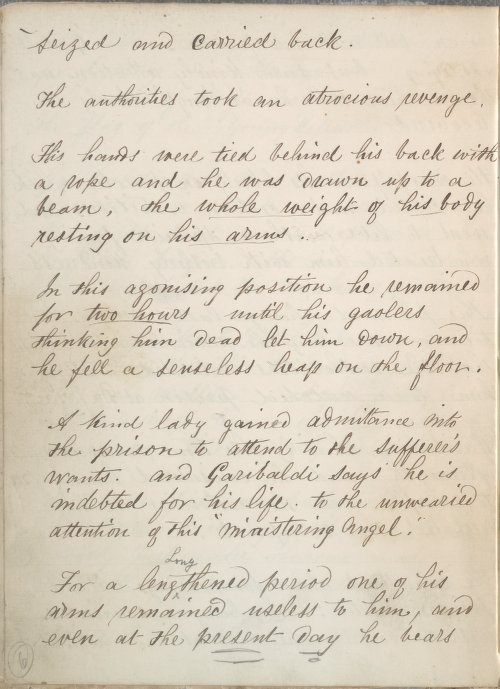 seized and carried back.
The authorities took an atrocious revenge.
His hands were tied behind his back with
a rope and he was drawn up to a
beam, the whole weight of his body
resting on his arms.
In this agonising position he remained
for two hours until his gaolers
thinking him dead let him down, and
he fell a senseless heap on the floor.
A kind lady gained admittance into
the prison to attend to the sufferer's
wants. and Garibaldi says he is
indebted for his life. to the unwearied
attention of this "ministering Angel."
Long
For a lengthened period one of his
arms remained useless to him, and
even at the present day he bears
6